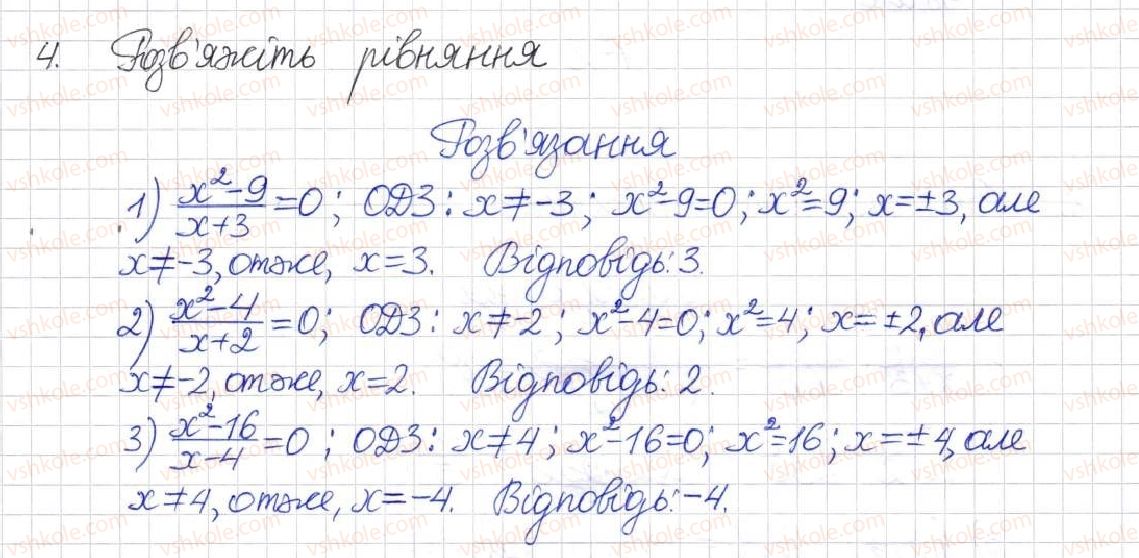 4. Розв'яжіть рівняння
Розв'язання
1) x²-9/x+3=0; ОДЗ: x≠-3; x²-9=0; x²=9; x=±3, але
x≠-3, отже, x=3. Відповідь: 3.
2) x²-4/x+2=0; ОДЗ: x≠-2; x²-4=0; x²=4; x=±2, але
x≠-2, отже, x=2. Відповідь: 2.
3) x²-16/x-4=0; ОДЗ: x≠4; x²-16=0; x²=16; x=±4, але
x≠4, отже, x=-4. Відповідь: -4.
vshkole.com